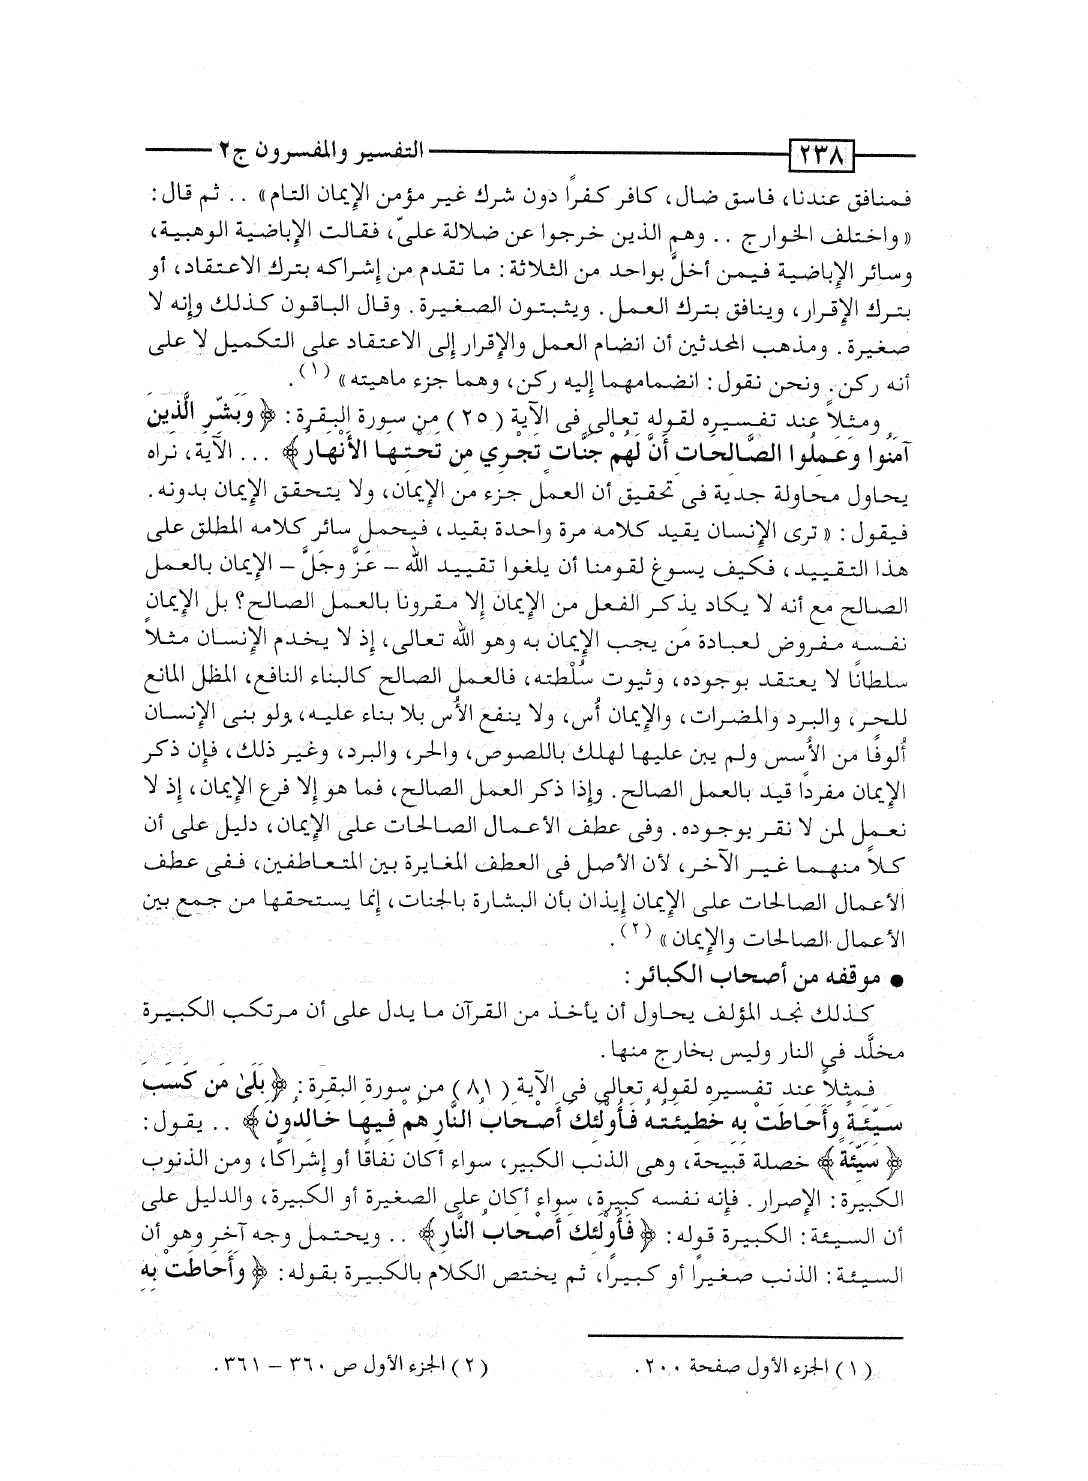 ٢٣٨ التفسير والمفسرون ج٢
فمنافق عندنا، فاسق ضال، كافر كفرًا دون شرك غير مؤمن الإيمان التام» .. ثم قال:
«واختلف الخوارج .. وهم الذين خرجوا عن ضلالة علىّ، فقالت الإباضية الوهبية،
وسائر الإباضية فيمن أخلَّ بواحد من الثلاثة: ما تقدم من إشراكه بترك الاعتقاد، أو
بترك الإقرار، وينافق بترك العمل. ويثبتون الصغيرة. وقال الباقون كذلك وإنه لا
صغيرة. ومذهب المحدثين أن انضمام العمل والإقرار إلى الاعتقاد على التكميل لا على
أنه ركن. ونحن نقول: انضمامهما إليه ركن، وهما جزء ماهيته» (١).
ومثلاً عند تفسيره لقوله تعالى فى الآية (٢٥) من سورة البقرة: ﴿ وَبَشِّرِ الَّذِينَ
آمَنُوا وَعَمِلُوا الصَّالِحَاتِ أَنَّ لَهُمْ جَنَّاتٍ تَجْرِي مِن تَحْتِهَا الأَنْهَارُ﴾ ... الآية، نراه
يحاول محاولة جدية فى تحقيق أن العمل جزء من الإيمان، ولا يتحقق الإيمان بدونه.
فيقول: «ترى الإنسان يقيد كلامه مرة واحدة بقيد، فيحمل سائر كلامه المطلق على
هذا التقييد، فكيف يسوغ لقومنا أن يلغوا تقييد الله – عَزَّ وجَلَّ – الإيمان بالعمل
الصالح مع أنه لا يكاد يذكر الفعل من الإيمان إلا مقرونا بالعمل الصالح؟ بل الإيمان
نفسه مفروض لعبادة مَن يجب الإيمان به وهو الله تعالى، إذ لا يخدم الإنسان مثلاً
سلطانًا لا يعتقد بوجوده، وثبوت سُلْطته، فالعمل الصالح كالبناء النافع، المظل المانع
للحر، والبرد والمضرات، والإيمان أُس، ولا ينفع الأُس بلا بناء عليه، ولو بنى الإنسان
أُلوفًا من الأُسس ولم يبن عليها لهلك باللصوص، والحر، والبرد، وغير ذلك، فإن ذكر
الإيمان مفردًا قيد بالعمل الصالح. وإذا ذكر العمل الصالح، فما هو إلا فرع الإيمان، إذ لا
نعمل لمن لا نقر بوجوده. وفى عطف الأعمال الصالحات على الإيمان، دليل على أن
كلاً منهما غير الآخر، لأن الأصل فى العطف المغايرة بين المتعاطفين، ففى عطف
الأعمال الصالحات على الإيمان إيذان بأن البشارة بالجنات، إنما يستحقها من جمع بين
الأعمال الصالحات والإيمان» (٢).
● موقفه من أصحاب الكبائر:
كذلك نجد المؤلف يحاول أن يأخذ من القرآن ما يدل على أن مرتكب الكبيرة
مخلَّد فى النار وليس بخارج منها.
فمثلاً عند تفسيره لقوله تعالى فى الآية (٨١) من سورة البقرة: ﴿ بَلَىٰ مَن كَسَبَ
سَيِّئَةً وَأَحَاطَتْ بِهِ خَطِيئَتُهُ فَأُوْلَئِكَ أَصْحَابُ النَّارِ هُمْ فِيهَا خَالِدُونَ﴾ .. يقول:
﴿ سَيِّئَةً﴾ خصلة قبيحة، وهى الذنب الكبير، سواء أكان نفاقًا أو إشراكًا، ومن الذنوب
الكبيرة: الإصرار. فإنه نفسه كبيرة، سواء أكان على الصغيرة أو الكبيرة، والدليل على
أن السيئة: الكبيرة قوله: ﴿ فَأُوْلَئِكَ أَصْحَابُ النَّارِ﴾ .. ويحتمل وجه آخر وهو أن
السيئة: الذنب صغيرًا أو كبيرًا، ثم يختص الكلام بالكبيرة بقوله: ﴿ وَأَحَاطَتْ بِهِ
(١) الجزء الأول صفحة ٢٠٠. (٢) الجزء الأول ص ٣٦٠ – ٣٦١.